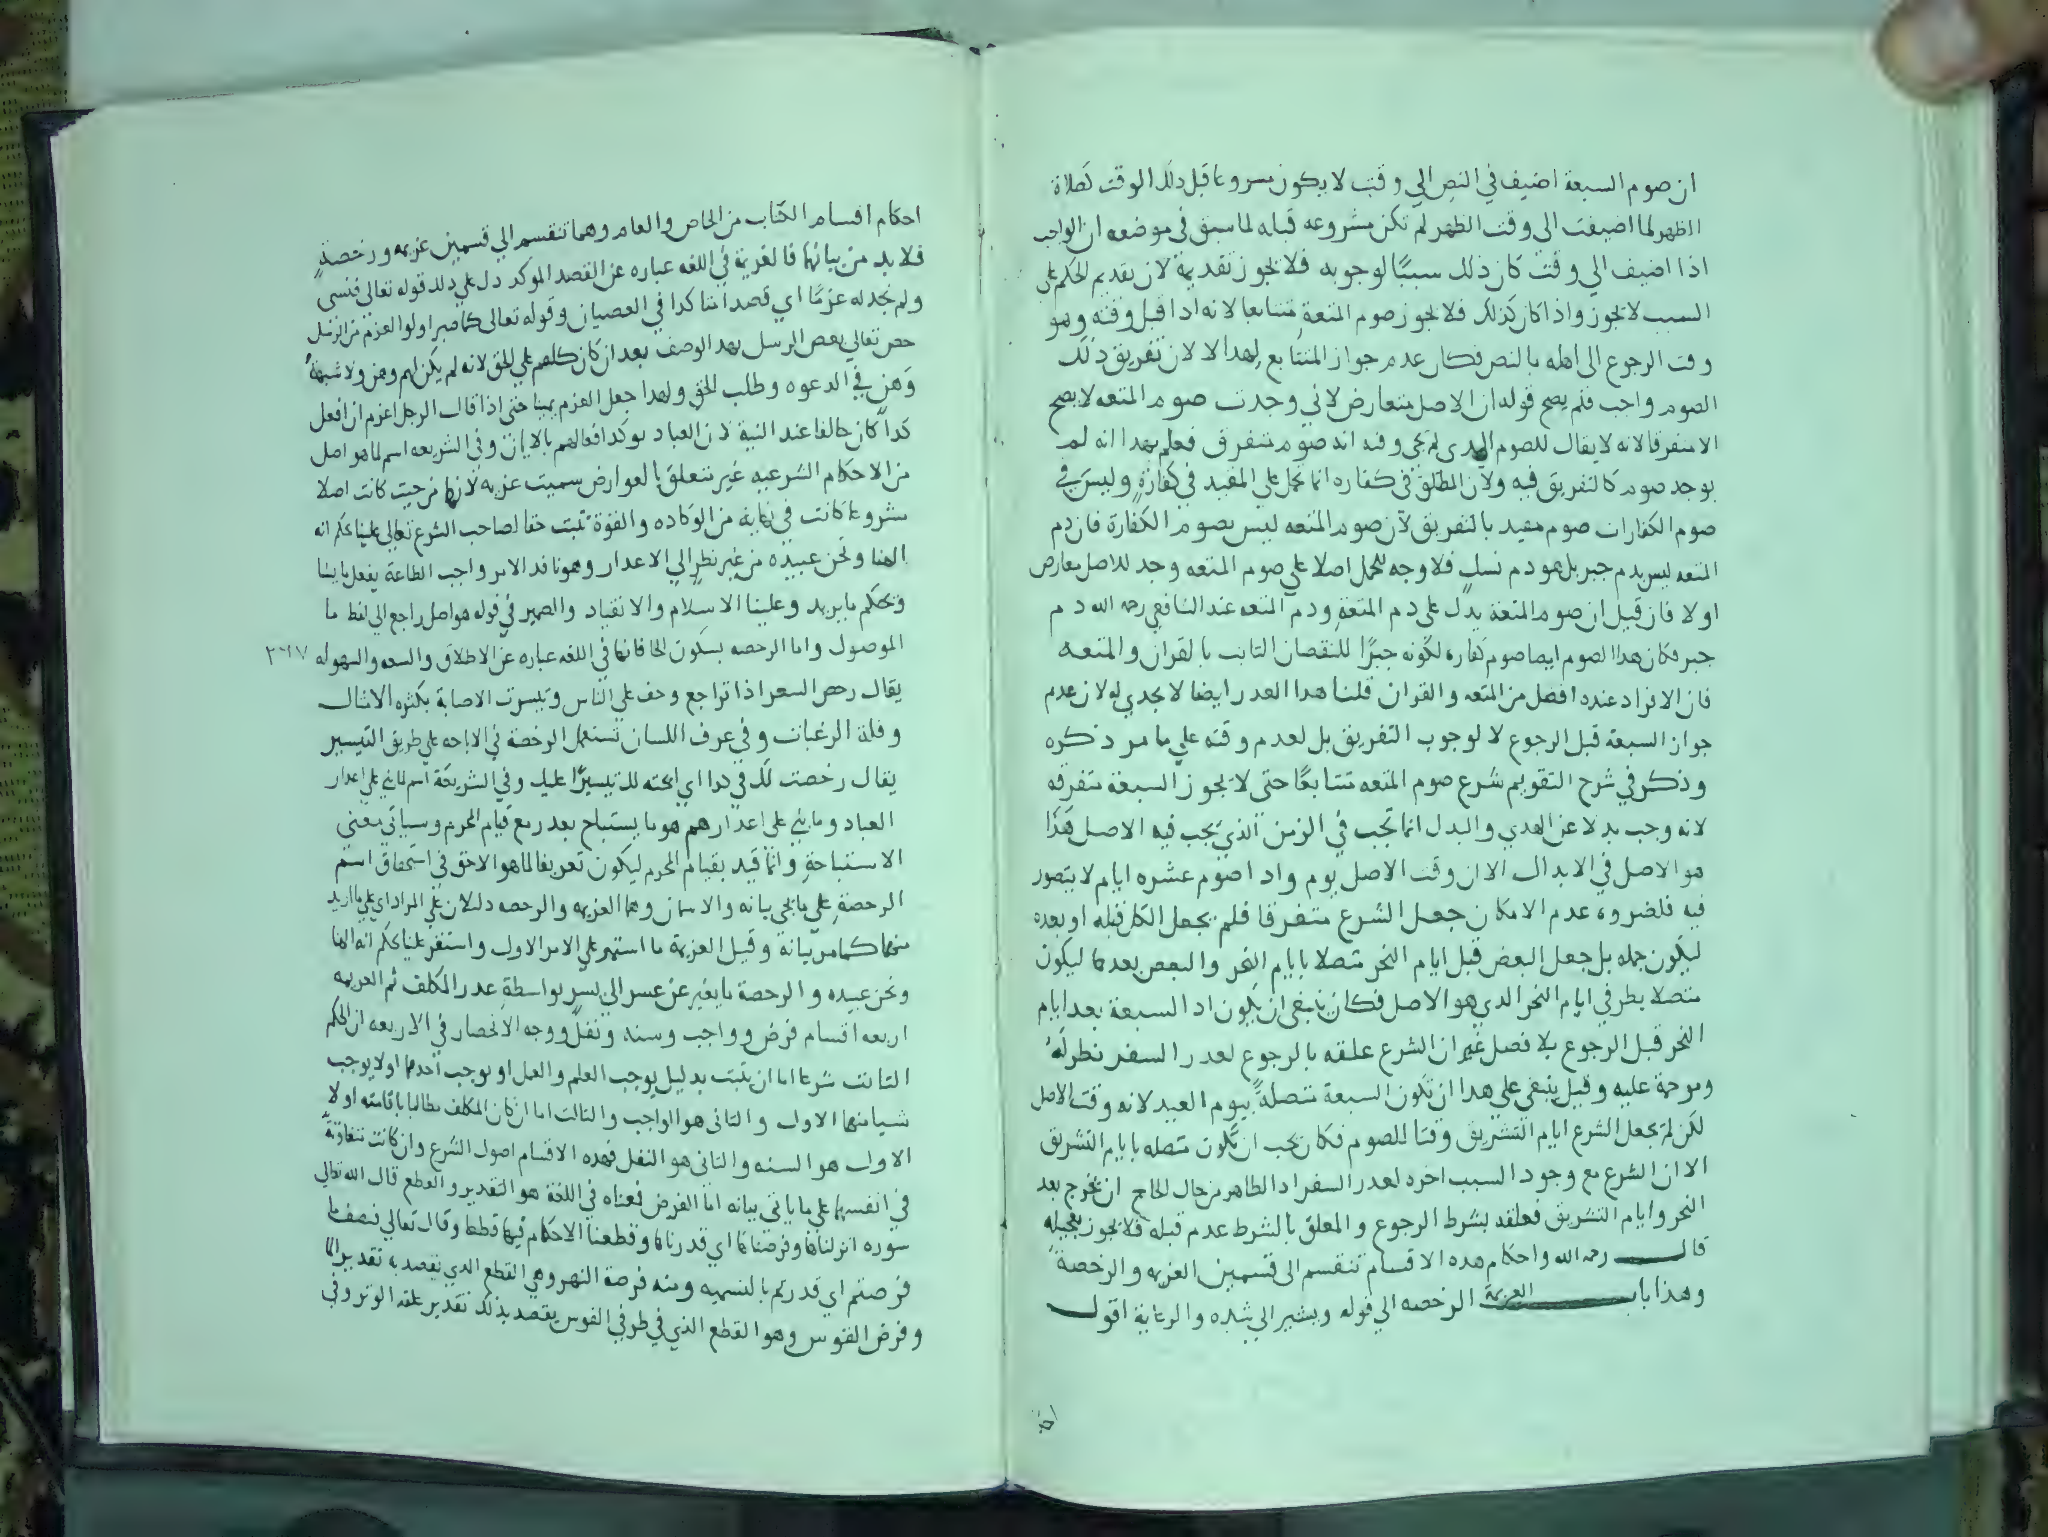 ان صوم السبعة اضيف في النص الي وقت لا يكون مسروعا قبل دلك الوقت كصلاة
الظهر لما اضيفت الى وقت الظهر لم تكن مشروعه قبله لما سبق في موضعه ان الواجب
اذا اضيف الي وقت كان ذلك سببًا لوجوبه فلا يجوز تقديمه لان تقديم الحكم على
السبب لا يجوز واذا كان كذلك فلا يجوز صوم المتعة متتابعا لانه اداء قبل وقته وهو
وقت الرجوع الى اهله بالنص فكان عدم جواز المتتابع لهدا لا لان تفريق ذلك
الصوم واجب فلم يصح قوله ان الاصل متعارض لاني وجدت صوم المتعه لا يصح
الا متفرقا لانه لا يقال للصوم الدى لم يجي وقته انه صوم متفرق فعلم بهدا انه لم
يوجد صوم كالتفريق فيه ولان المطلق في كفاره انما يحمل علي المقيد في كفارةٍ وليس في
صوم الكفارات صوم مقيد بالتفريق لان صوم المتعه ليس بصوم الكفارة فان دم
المتعه ليس بدم جبر بل هو دم نسك فلا وجه للحمل اصلا علي صوم المتعه وجد للاصل معارض
اولا فان قيل ان صوم المتعة بدل على دم المتعةِ ودم المتعه عند الشافعي رحمه الله دم
جبر فكان هدا الصوم ايضا صوم كفاره لكونه جبرًا للنقصان الثابت بالقران والمتعه
فان الافراد عنده افضل من المتعه والقران قلنا هدا العدر ايضا لا يجدي له لان عدم
جواز السبعة قبل الرجوع لا لوجوب التفريق بل لعدم وقته علي ما مر ذكره
وذكر في شرح التقويم شرع صوم المتعه متتابعًا حتى لا يجوز السبعة متفرقه
لانه وجب بدلا عن الهدي والبدل انما يجب في الزمن الذي يجب فيه الاصل هذا
هو الاصل في الابدال الا ان وقت الاصل يوم واداء صوم عشره ايام لا يتصور
فيه فلضرورة عدم الامكان جعل الشرع متفرقا فلم يجعل الكل قبله او بعده
ليكون جمله بل جعل البعض قبل ايام النحر متصلا بايام النحر والبعض بعدها ليكون
متصلا بطرفي ايام النحر الدي هو الاصل فكان ينبغي ان يكون اداء السبعة بعد ايام
النحر قبل الرجوع بلا فصل غير ان الشرع علقه بالرجوع لعدر السفر نظرا له
ومرحمة عليه وقيل ينبغي علي هدا ان تكون السبعة متصلةً بيوم العيد لانه وقت الاصل
لكن لم يجعل الشرع ايام التشريق وقتا للصوم فكان يجب ان تكون متصله بايام التشريق
الا ان الشرع مع وجود السبب اخره لعدر السفر اد الظاهر من حال الحاج ان يخرج بعد
النحر وايام التشريق فعلقه بشرط الرجوع والمعلق بالشرط عدم قبله فلا يجوز تعجيله
قال رحمه الله واحكام هده الاقسام تنقسم الى قسمين العزيمه والرخصة
وهذا باب العزيمة الرخصه الي قوله ويشير الي شده والرعاية اقول
احكام
احكام اقسام الكتاب من الخاص والعام وهما تنقسم الي قسمين عزيمه ورخصةٍ
فلا بد من بيانهما فالعزيمة في اللغه عباره عن القصد الموكد دل علي دلك قوله تعالي فنسى
ولم نجد له عزمًا اي قصدا متاكدا في العصيان وقوله تعالى كما صبر اولوا العزم من الرسل
خص تعالي بعض الرسل بهدا الوصف بعد ان كان كلهم علي الحق لانه لم يكن لهم وهن ولا شبهة
وَهنٍ في الدعوه وطلب الحق ولهدا جعل العزم يمينا حتى اذا قال الرجل اعزم ان افعل
كدا كان حالفا عند النية لان العباد يوكد افعالهم بالايمان وفي الشريعه اسم لما هو اصل
من الاحكام الشرعيه غير متعلق بالعوارض سميت عزيمه لانها من حيث كانت اصلا
مشروعا كانت في نهاية من الوكاده والقوة ثبتت حقا لصاحب الشرع تعالى علينا بحكم انه
الهنا ونحن عبيده من غير نظرٍ الي الاعدار وهو نافد الامر واجب الطاعة يفعل ما يشا
ويحكم ما يريد وعلينا الاسلام والانقياد والضمير في قوله هو اصل راجع الي لفظ ما
الموصول واما الرخصه بسكون الخا فانها في اللغه عباره عن الاطلاق والسعه والسهوله ٢٦٧
يقال رخص السعر اذا تراجع وخف علي الناس وتيسرت الاصابة بكثره الامثال
وقلة الرغبات وفي عرف اللسان تستعمل الرخصة في الاباحه علي طريق التيسير
يقال رخصت لك في كدا اي ابحته لك تيسيرًا عليك وفي الشريعة اسم لما بني على اعدار
العباد وما بني على اعدارهم هو ما يستباح بعدر مع قيام المحرم وسياتي معنى
الاستباحةِ وانما قيد بقيام المحرم ليكون تعريفا لما هو الاحق في استحقاق اسم
الرخصةِ علي ما يجي بيانه والاسمان وهما العزيمه والرخصه دليلان علي المراد اي علي ما اريد
منهما كما مر بيانه وقيل العزيمة ما استمر علي الامر الاول واستقر علينا بحكم انه الهنا
ونحن عبيده والرخصة ما يغير عن عسرٍ الى يسرٍ بواسطةِ عدر المكلف ثم العزيمه
اربعه اقسام فرض وواجب وسنه ونفلٌ ووجه الانحصار في الاربعه ان الحكم
الثابت شرعا اما ان يثبت بدليل يوجب العلم والعمل او يوجب احدهما او لا يوجب
شيا منهما الاول والثاني هو الواجب والثالث اما ان كان المكلف مطالبا باقامته او لا
الاول هو السنه والثاني هو النفل فهده الاقسام اصول الشرع وان كانت متفاوتةً
في انفسها علي ما ياتي بيانه اما الفرض فمعناه في اللغة هو التقدير والقطع قال الله تعالي
سوره انزلناها وفرضناها اي قدرناها وقطعنا الاحكام فيها قطعا وقال تعالي فنصف ما
فرضتم اي قدرتم بالتسميه ومنه فرضة النهر وهي القطع الدي يقصد به تقدير الما
وفرض القوس وهو القطع الذي في طرفي القوس يقصد بذلك تقدير علقه الوتر وفي